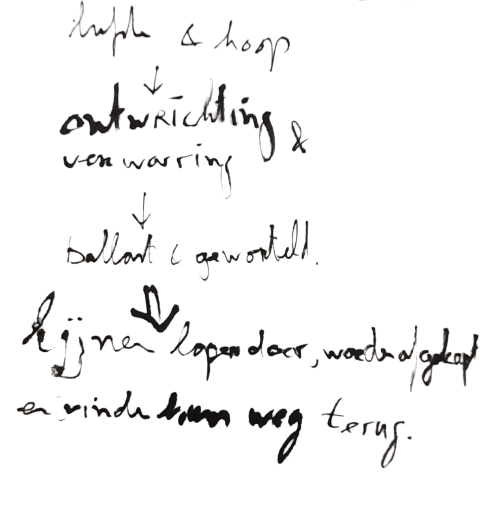 liefde & hoop
↓
ontwrichting &
verwarring
↓
Ballast & geworteld.
↓
lijnen lopen door, worden afgekapt
en vinden hun weg terug.